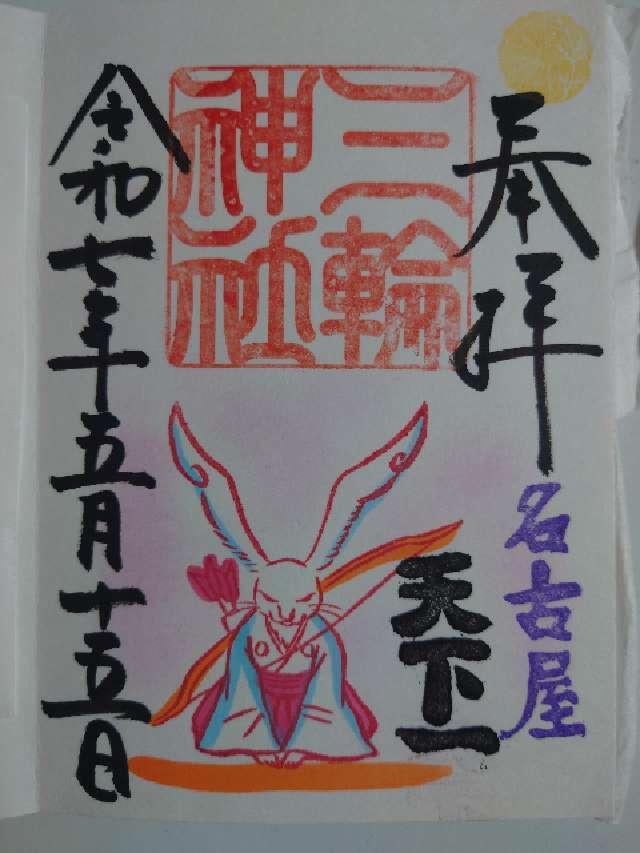 奉拝
名古屋
天下一
三輪
神社
令和七年五月十五日